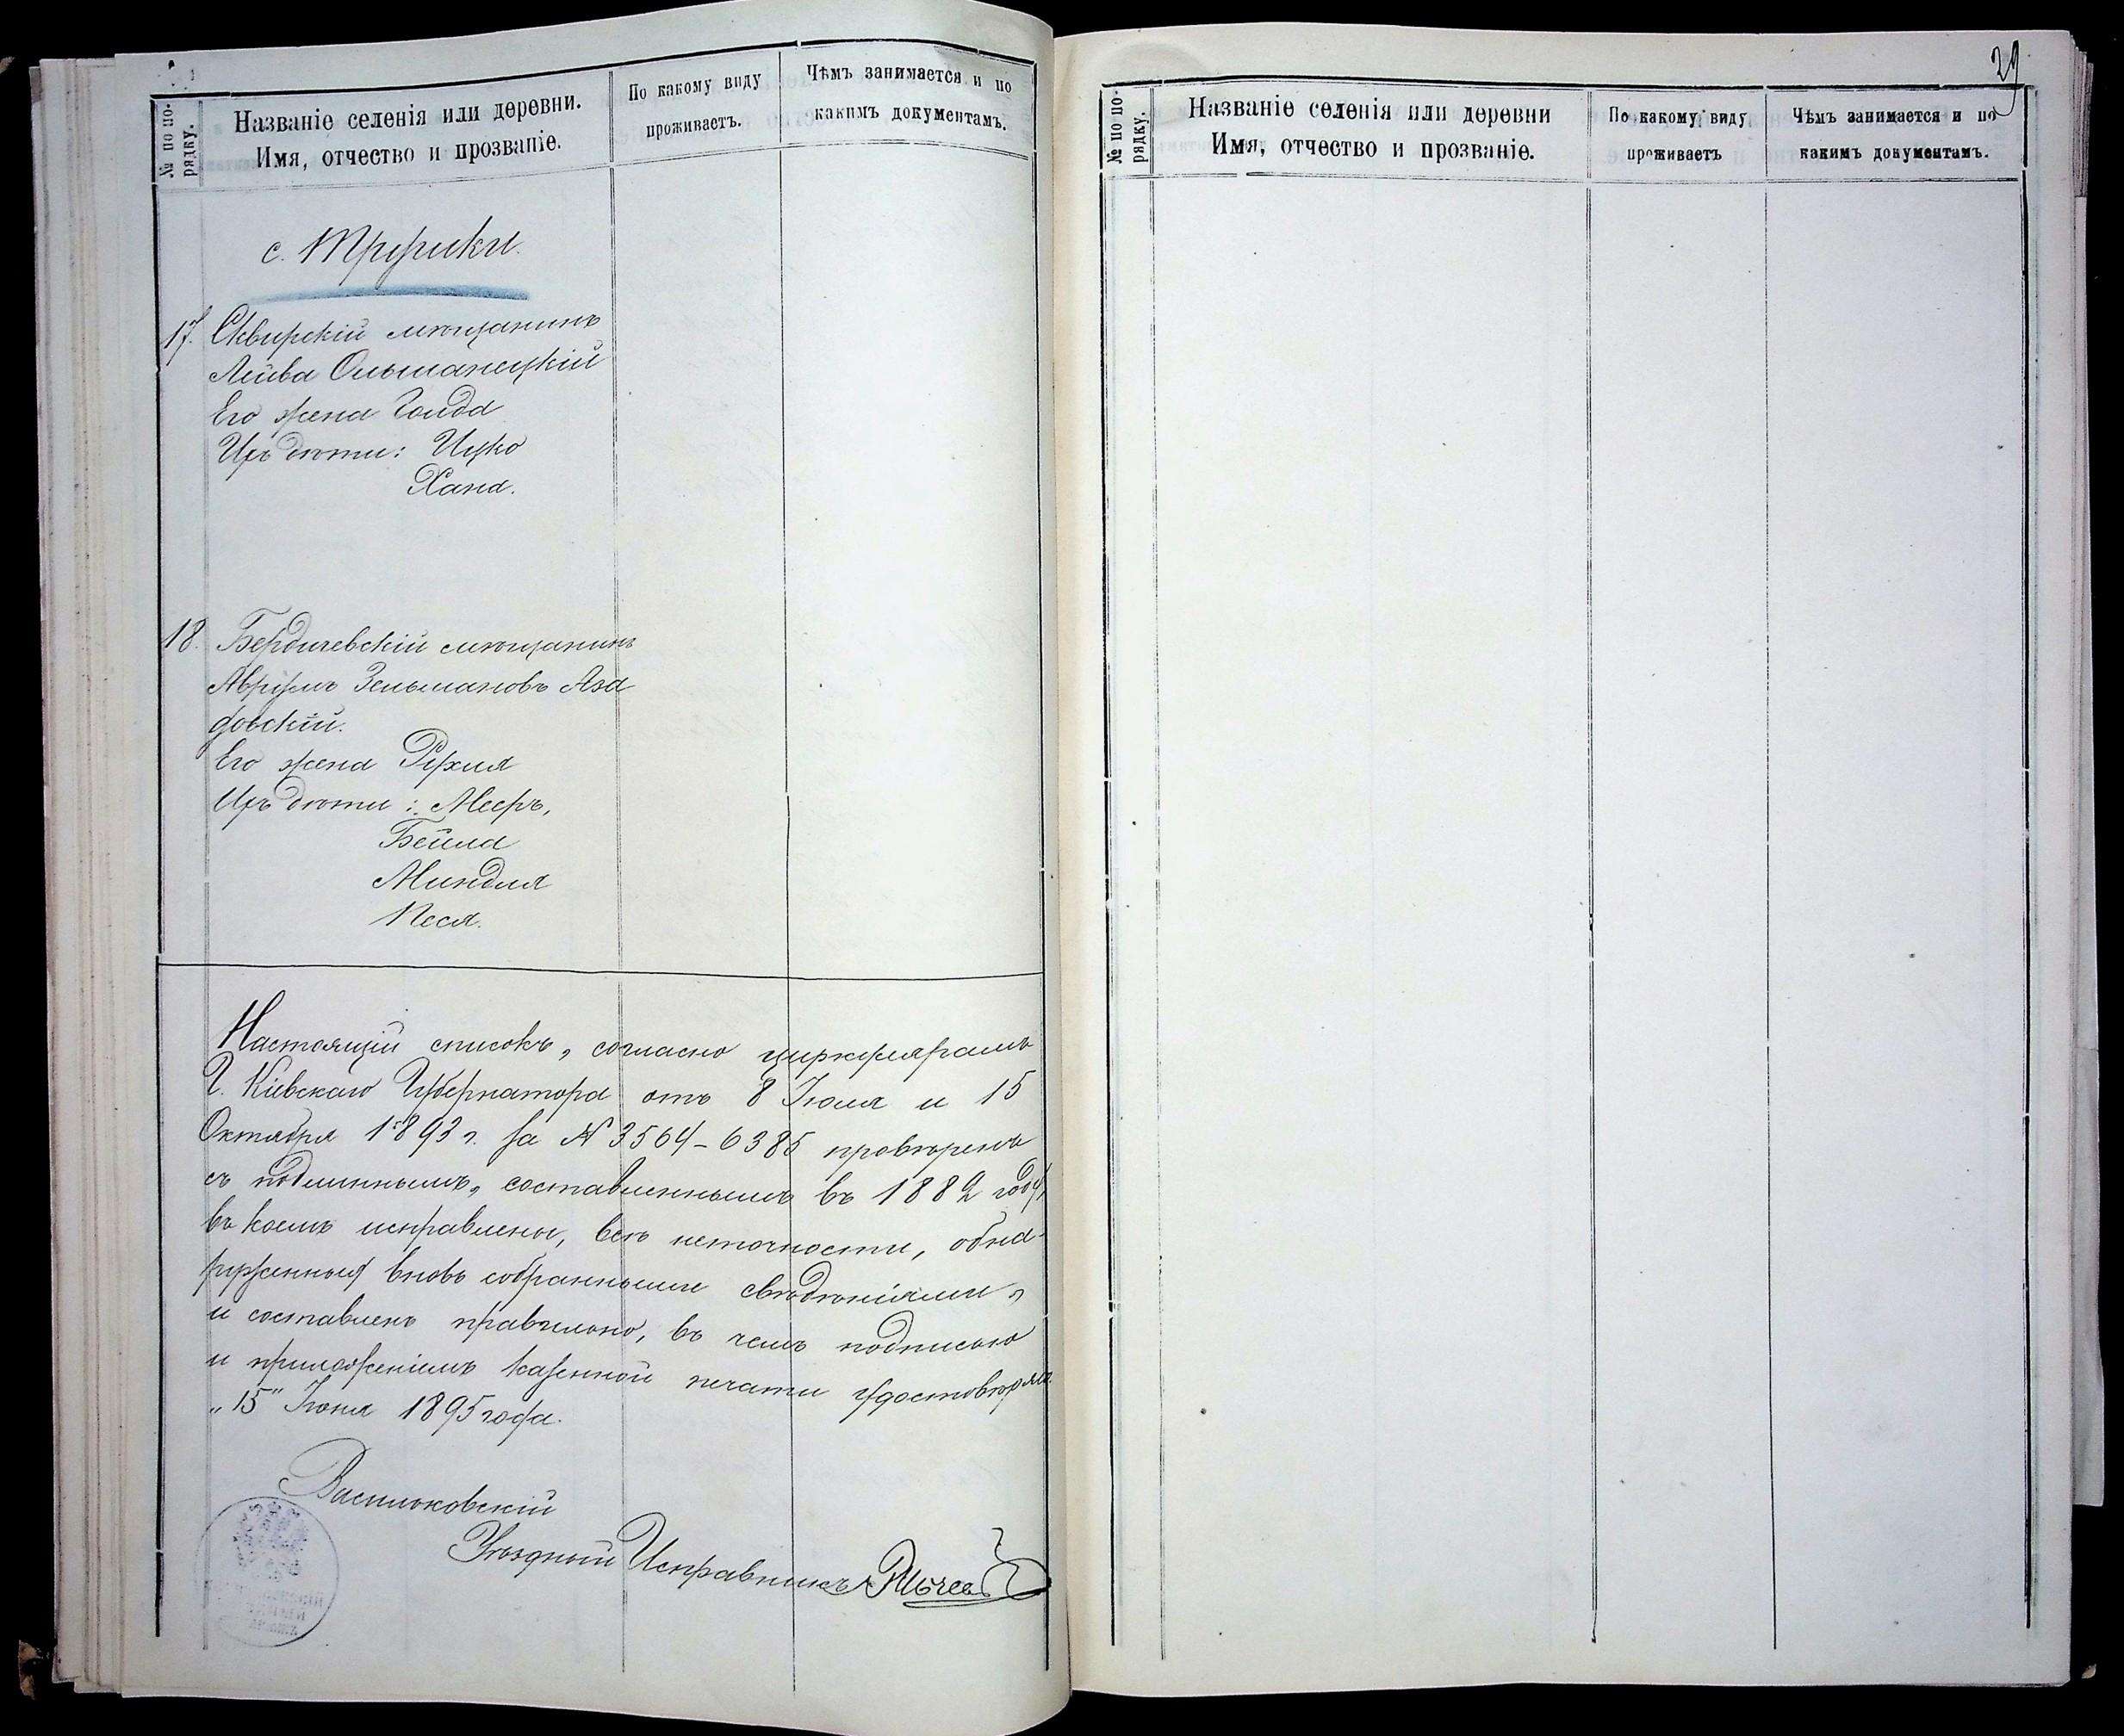 № по по-
рядку.
Названіе селенія или деревни.
Имя, отчество и прозваніе.
По какому виду
проживаетъ.
Чѣмъ занимается и по
какимъ документамъ.
с. Трушки.
17. Сквирскій мѣщанинъ
Лейба Ольшанецкій
Его жена Голда
Ихъ дѣти: Ицко
Хана.
18. Бердичевскій мѣщанинъ
Аврумъ Зельмановъ Аза
довскій.
Его жена Рухля
Ихъ дѣти: Мееръ,
Бейла
Миндля
Песя.
Настоящій списокъ, согласно циркулярамъ
Г. Кіевскаго Губернатора отъ 8 Іюля и 15
Октября 1893 г. за № 3564-6385 провѣренъ
съ подлиннымъ, составленнымъ въ 1882 году,
въ коемъ исправлены, всѣ неточности, обна-
руженныя вновь собранными свѣдѣніями,
и составленъ правильно, въ чемъ подписью
и приложеніемъ казенной печати удостовѣряю.
„15" Іюня 1895 года.
Васильковскій
Уѣздный Исправникъ
29
№ по по-
рядку.
Названіе селенія или деревни
Имя, отчество и прозваніе.
По какому виду
проживаетъ
Чѣмъ занимается и по
какимъ документамъ.